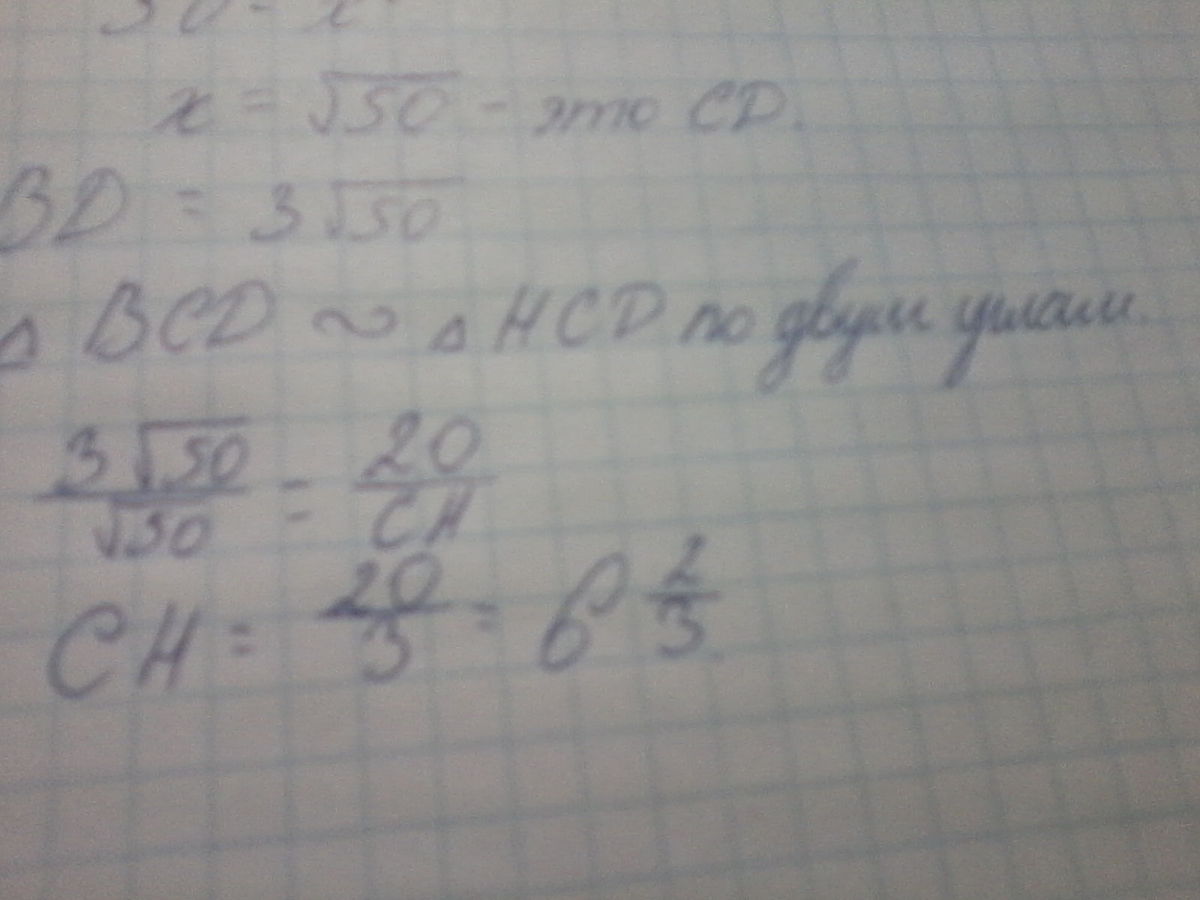 x = √50 - это CD.
BD = 3√50
△ BCD ~ △ HCD по двум углам.
3√50/√50 = 20/CH
CH = 20/3 = 6 2/3